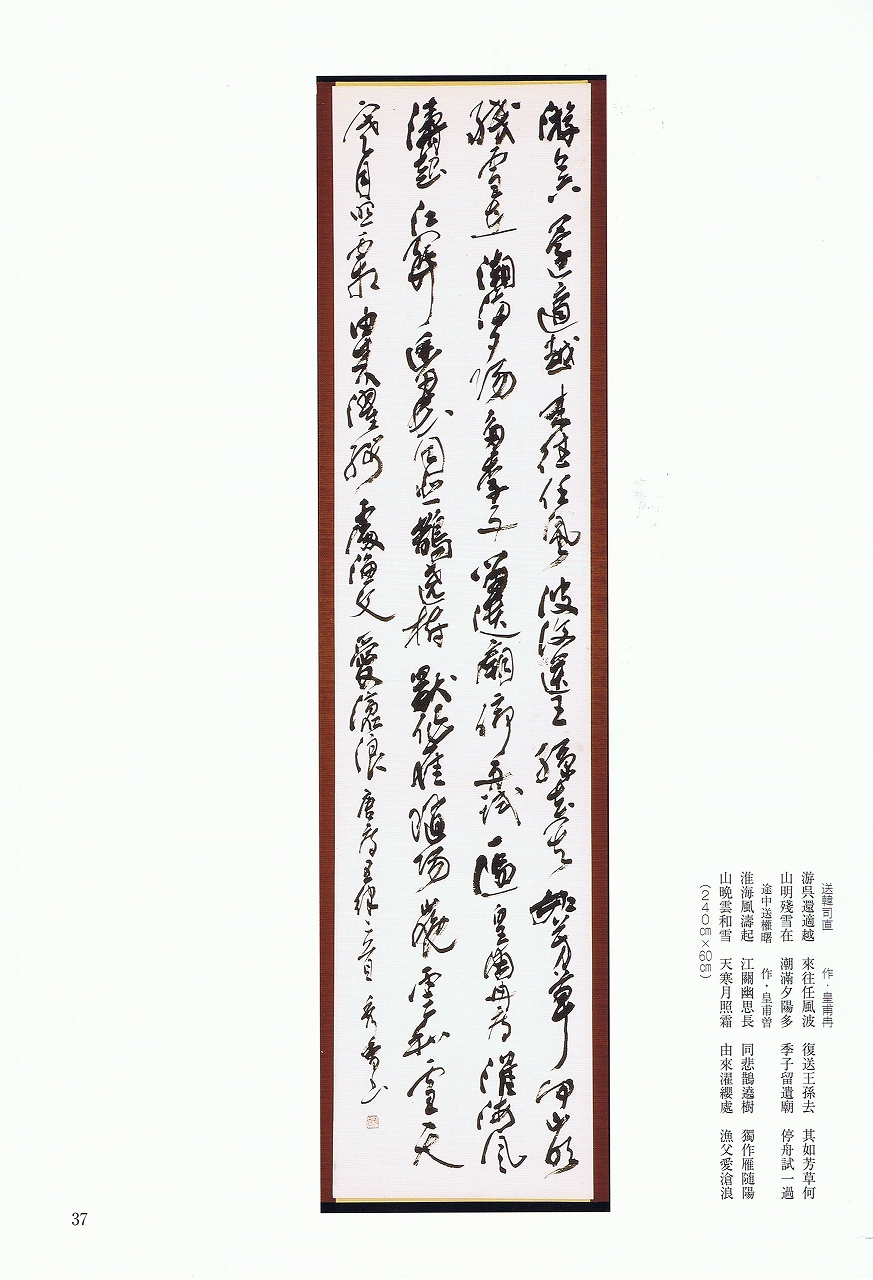 送韓司直　作・皇甫冉
游呉還適越　來往任風波　復送王孫去　其如芳草何
山明殘雪在　潮滿夕陽多　季子留遺廟　停舟試一過
途中送權曙　作・皇甫曽
淮海風濤起　江關幽思長　同悲鵲遶樹　獨作雁随陽
山晩雲和雪　天寒月照霜　由來濯纓處　漁父愛滄浪
(240㎝×60㎝)
游呉還適越來往任風波復送王孫去其如芳草何山明
殘雪在潮滿夕陽多季子留遺廟停舟試一過皇甫冉詩淮海風
濤起江關幽思長同悲鵲遶樹獨作雁随陽山晩雲和雪天
寒月照霜由來濯纓處漁父愛滄浪唐詩五律二首
37